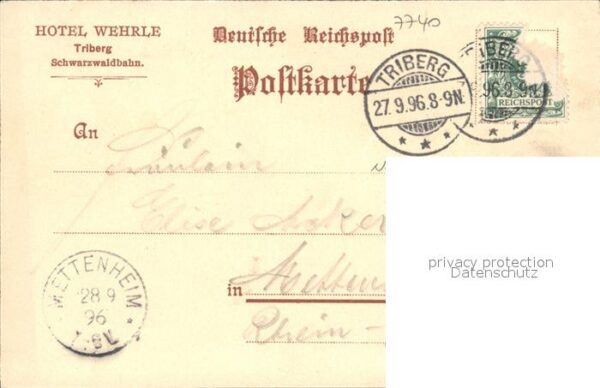 HOTEL WEHRLE
Triberg
Schwarzwaldbahn.
7740
Deutsche Reichspost
Postkarte
TRIBERG
27.9.96.8-9N.
TRIBERG
.96.8-9N.
REICHSPOST
An
Fräulein
Elise Acker
in
Rhein-
METTENHEIM
28 9
96
privacy protection
Datenschutz